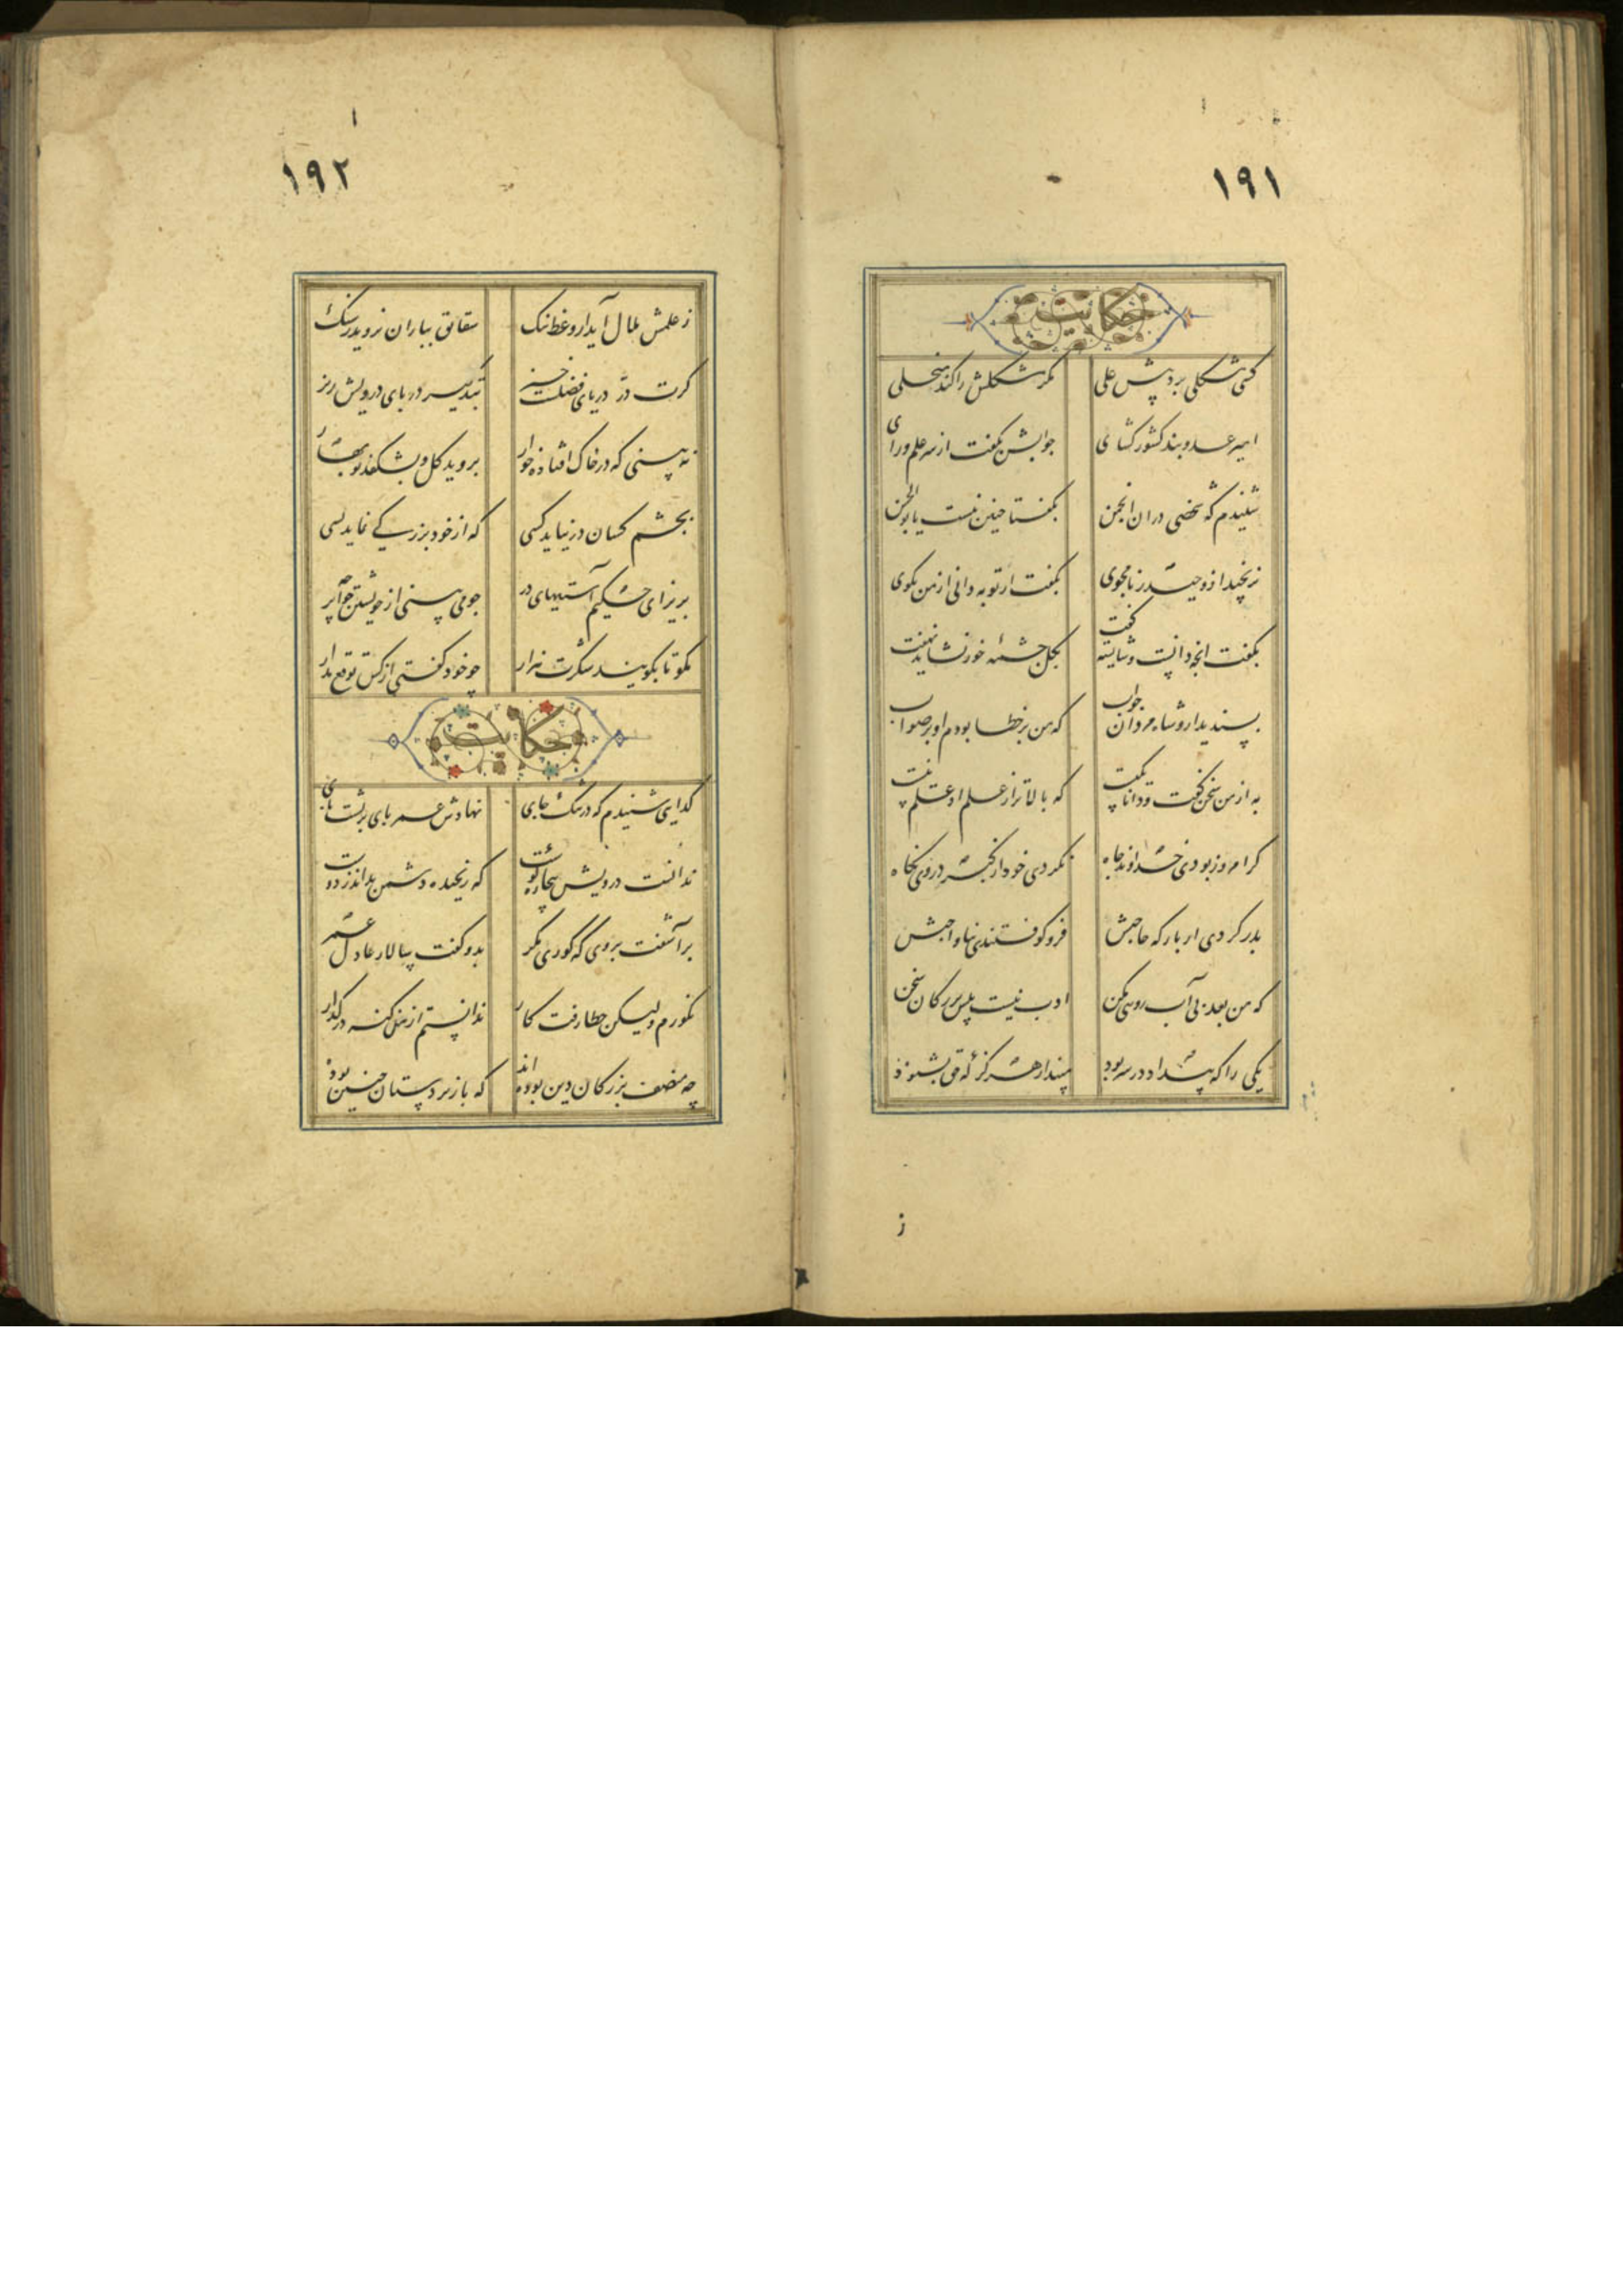 ۱۹۱
حکایت
کسی مشکلی برد پیش علی
مگر مشکلش را کند منجلی
امیر عدو بند کشور کشای
جوابش بکفت از سر علم و رای
شنیدم که شخصی در ان انجمن
بکفتا چنین نیست یا بو الحسن
نرنجید ازو حیدر نامجوی
بکفت ار تو به دانی از من بکوی
بکفت انچه دانست و شایسته کفت
بکل چشمه خور نشاید نهفت
پسندید ازو شاه مردان جواب
که من بر خطا بودم او بر صواب
به از من سخن کفت و دانا یکیست
که بالاتر از علم او علم نیست
کر امروز بودی خداوند جاه
نکردی خود از کبر در وی نکاه
بدر کردی از بارکه حاجبش
فرو کوفتندی بناواجبش
که من بعد بی آب رویی مکن
ادب نیست پیش بزرکان سخن
یکی را که پندار در سر بود
مپندار هرکز که حق بشنود
ز
۱۹۲
ز علمش ملال آید از وعظ ننک
شقایق بباران نروید ز سنک
کرت در دریای فضلست خیز
بتدبیر در پای درویش ریز
نه بینی که در خاک افتاده خوار
بروید کل و بشکفد نوبهار
بچشم کسان در نیاید کسی
که از خود بزرکی نماید بسی
مریز ای حکیم آستینهای در
چو می بینی از خویشتن خواجه پر
مکو تا بکویند شکرت هزار
چو خود کفتی از کس توقع مدار
حکایت
کدایی شنیدم که در تنک جای
نهادش عمر پای بر پشت پای
ندانست درویش بیچاره کوست
که رنجیده دشمن نداند ز دوست
بر آشفت بر وی که کوری مکر
بدو کفت سالار عادل عمر
نکورم ولیکن خطا رفت کار
ندانستم از من کنه در کذار
چه منصف بزرکان دین بوده اند
که با زیر دستان چنین بوده